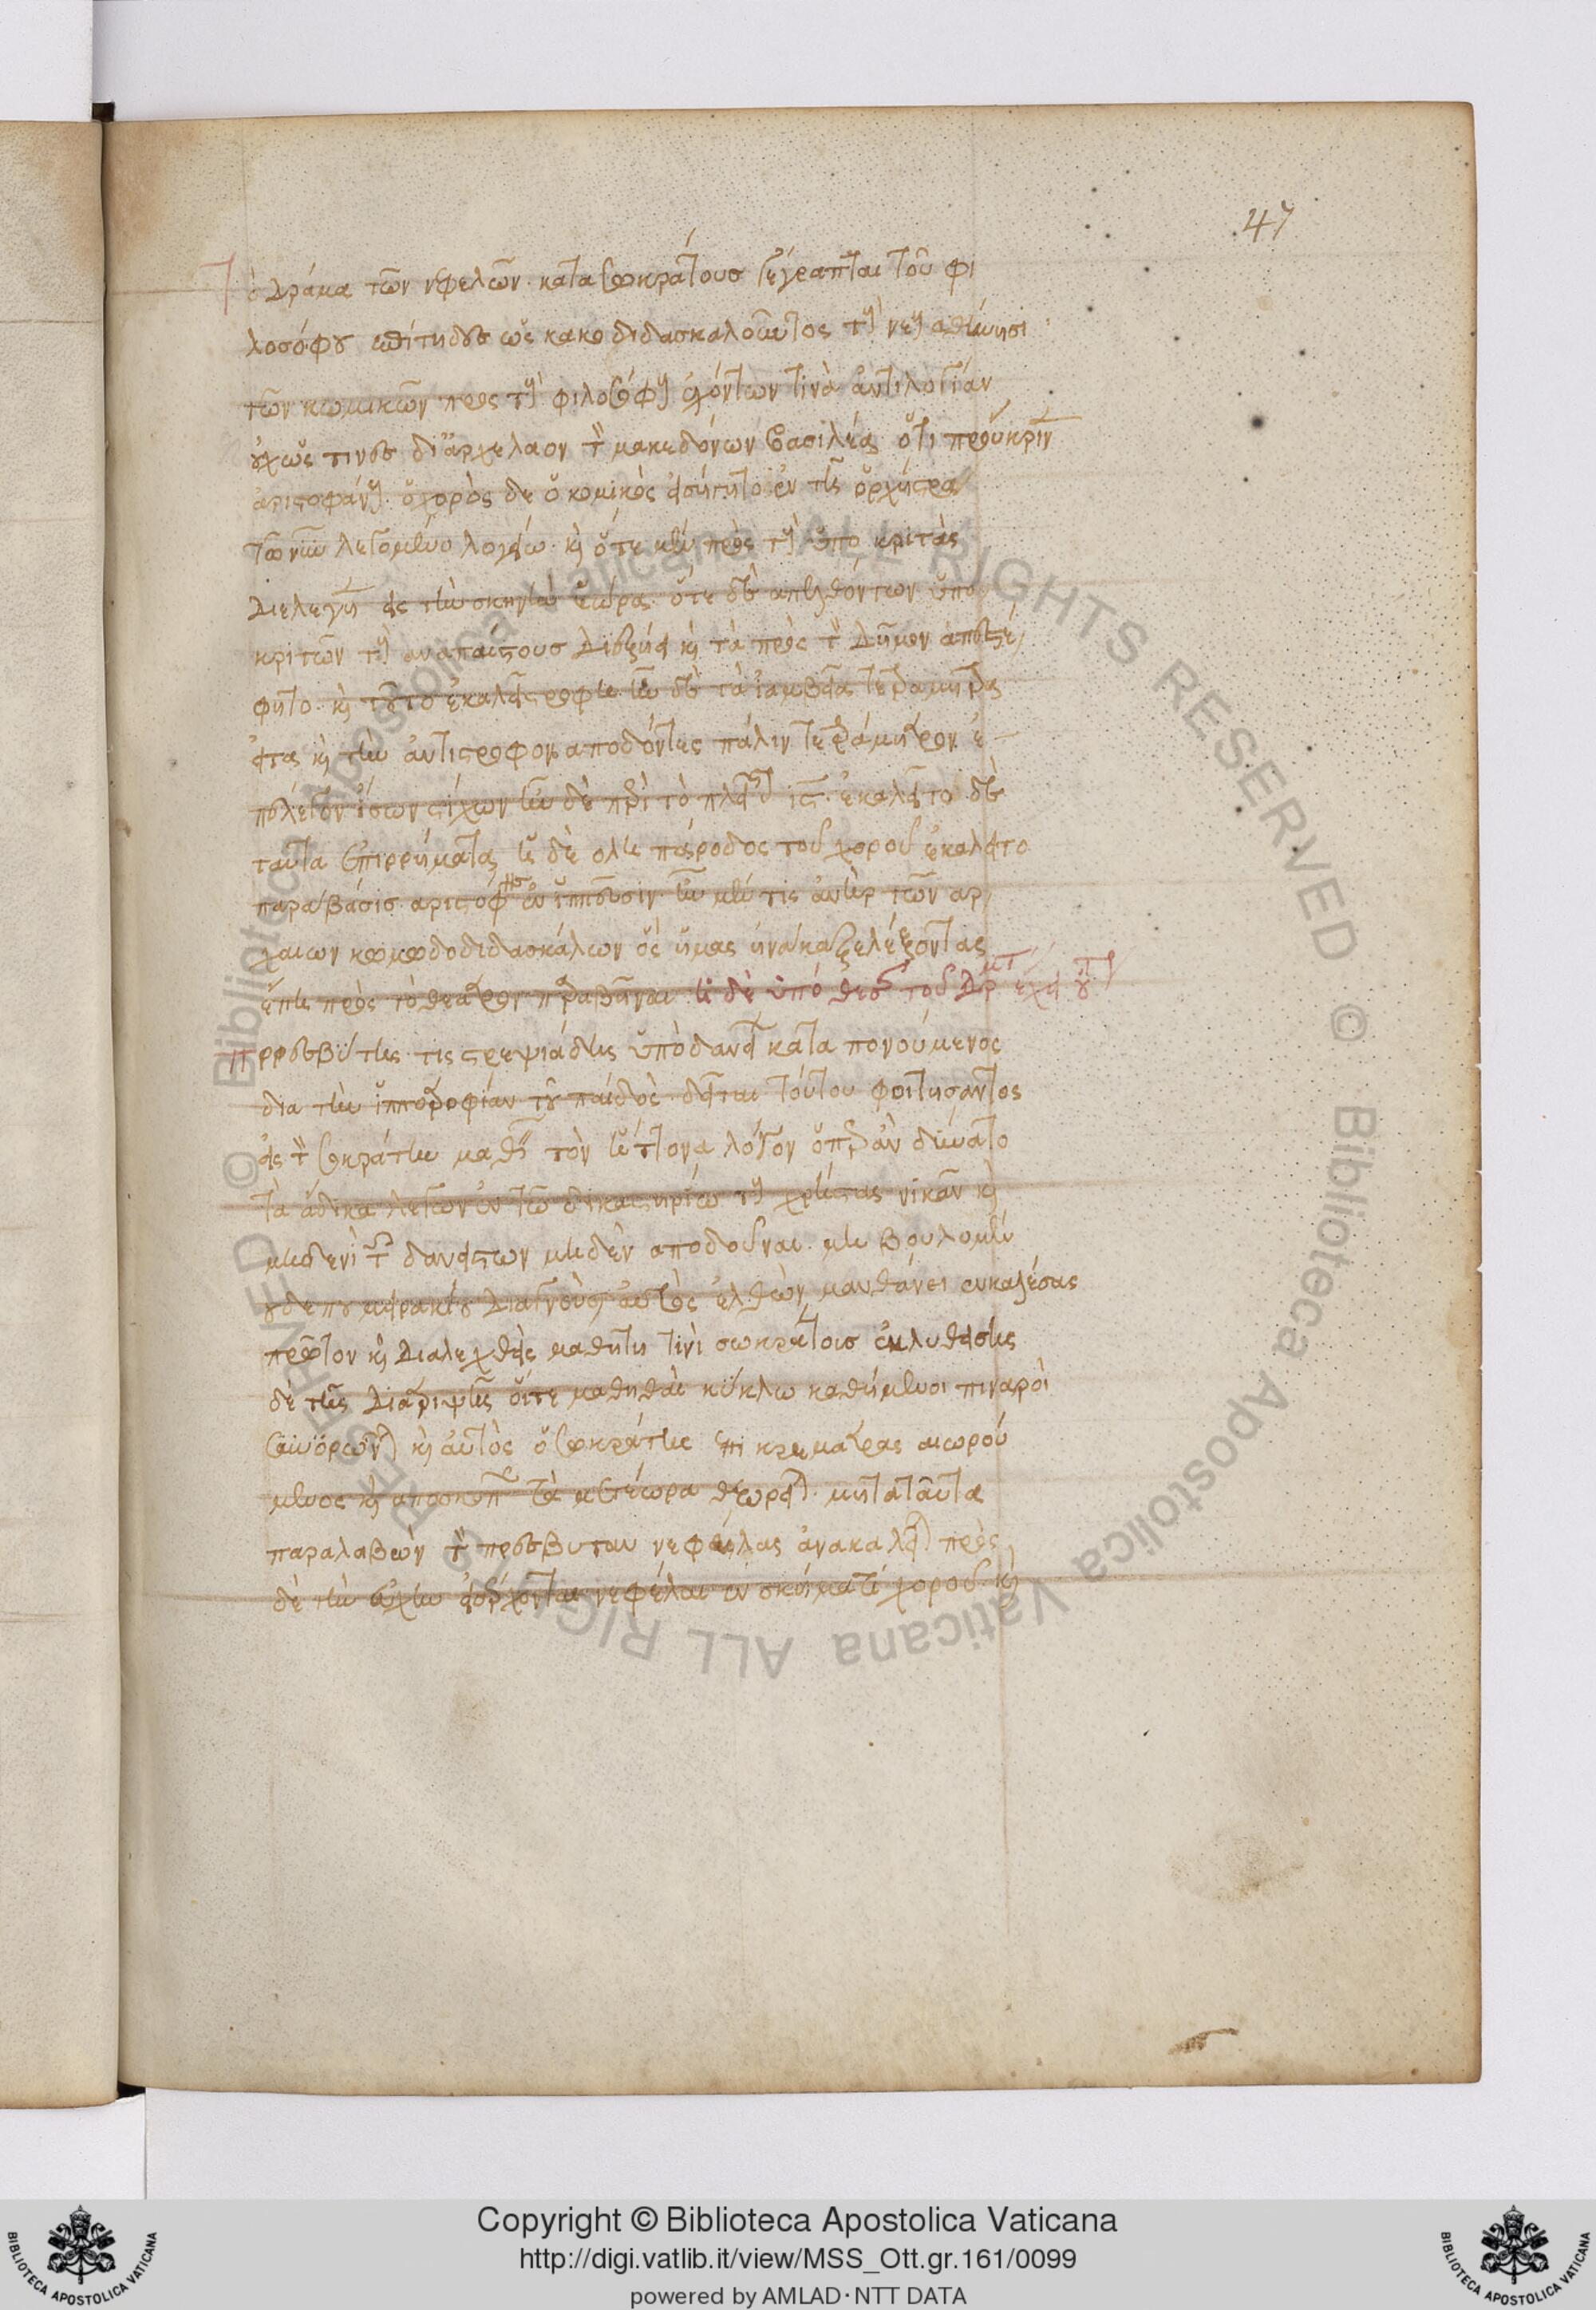 47
Τὸ δράμα τῶν νεφελῶν κατα σωκράτους γέγραπται τοῦ φι
λοσόφου ἐπίτηδες ὡς κακοδιδασκαλοῦντος τοὺς νέους ἀθήνησι
τῶν κωμικῶν πρὸς τοὺς φιλοσόφους ἐχόντων τινὰ ἀντιλογίαν
οὐχ ὥς τινες δι ἀρχέλαον τὸν μακεδόνων βασιλέα ὅτι προύκρινεν
ἀριστοφάνους. ὁ χορὸς δε ὁ κομικὸς εἰσήγετο ἐν τῆ ὀρχήστρα
τῶ νῦν λεγομένω λογείω. καὶ ὅτε μὲν πρὸς τοὺς ὑποκριτὰς
διελέγετο εἰς τὴν σκηνὴν ἑώρα. ὅτε δὲ ἀπελθόντων ὑπο
κριτῶν τοὺς αναπαίστους διεξήει καὶ τὰ πρὸς τὸν δῆμον ἀπεστρέ
φετο. καὶ τοῦτο ἐκαλεῖτο στροφή. ἦν δὲ τὰ ἰαμβεῖα τετράμετρα
εἶτα καὶ τὴν ἀντίστροφον ἀποδόντες πάλιν τετράμετρον ἐ
πέλεγον ἴσων στίχων ἦν δὲ ἐπὶ τὸ πλεῖστον ις. ἐκαλεῖτο δὲ
ταῦτα ἐπιρρήματα ἡ δὲ ὅλη πάροδος τοῦ χοροῦ ἐκαλεῖτο
παράβασις ἀριστοφάνης ἐν ἱππεῦσιν. ἦν μέν τις ἀνὴρ τῶν ἀρ
χαιων κωμωδοδιδασκάλων ὃς ὕμας ἠνάκαζε λέξοντας
ἔπη πρὸς τὸ θέατρον παραβῆναι ἡ δὲ ὑπόθεσις τοῦ δράματος ἔχει οὕτως
πρεσβύτης τις στρεψιάδης ὑπὸ δανείων καταπονούμενος
δια τὴν ἱπποτροφίαν τοῦ παιδὸς. δεῖται τούτου φοιτήσαντος
εἰς τὸν σωκράτην μαθεῖν τὸν ἥττονα λόγον ὅπως ἂν δύναιτο
τὰ ἄδικα λέγων ἐν τῶ δικαστηρίω τοὺς χρήστας νικᾶν καὶ
μηδενὶ τῶν δανειστῶν μηδὲν ἀποδοῦναι. μη βουλομέν
ου δε του μειρακίου διαγνοὺς αὐτὸς ἐλθὼν μανθάνει εκκαλέσας
πρῶτον καὶ διαλεχθεὶς μαθητῆ τινὶ σωκράτους ἐκκυκληθείσης
δὲ τῆς διατριβῆς οἵ τε μαθηταὶ κύκλω καθήμενοι πιναροὶ
συνορῶνται καὶ αὐτὸς ὁ σωκράτης ἐπὶ κρεμάθρας αἰωρού
μενος καὶ ἀποσκοπῶν τὰ μετέωρα θεωρεῖται. μετὰ ταῦτα
παραλαβὼν τὸν πρεσβύτην νεφέλας ἀνακαλεῖται πρὸς
δὲ τὴν εὐχὴν εἰσέρχονται νεφέλαι ἐν σχήματι χοροῦ καὶ
Copyright © Biblioteca Apostolica Vaticana
http://digi.vatlib.it/view/MSS_Ott.gr.161/0099
powered by AMLAD · NTT DATA
BIBLIOTECA APOSTOLICA VATICANA
BIBLIOTECA APOSTOLICA VATICANA
© Biblioteca Apostolica Vaticana ALL RIGHTS RESERVED © Biblioteca Apostolica Vaticana ALL RIGHTS RESERVED